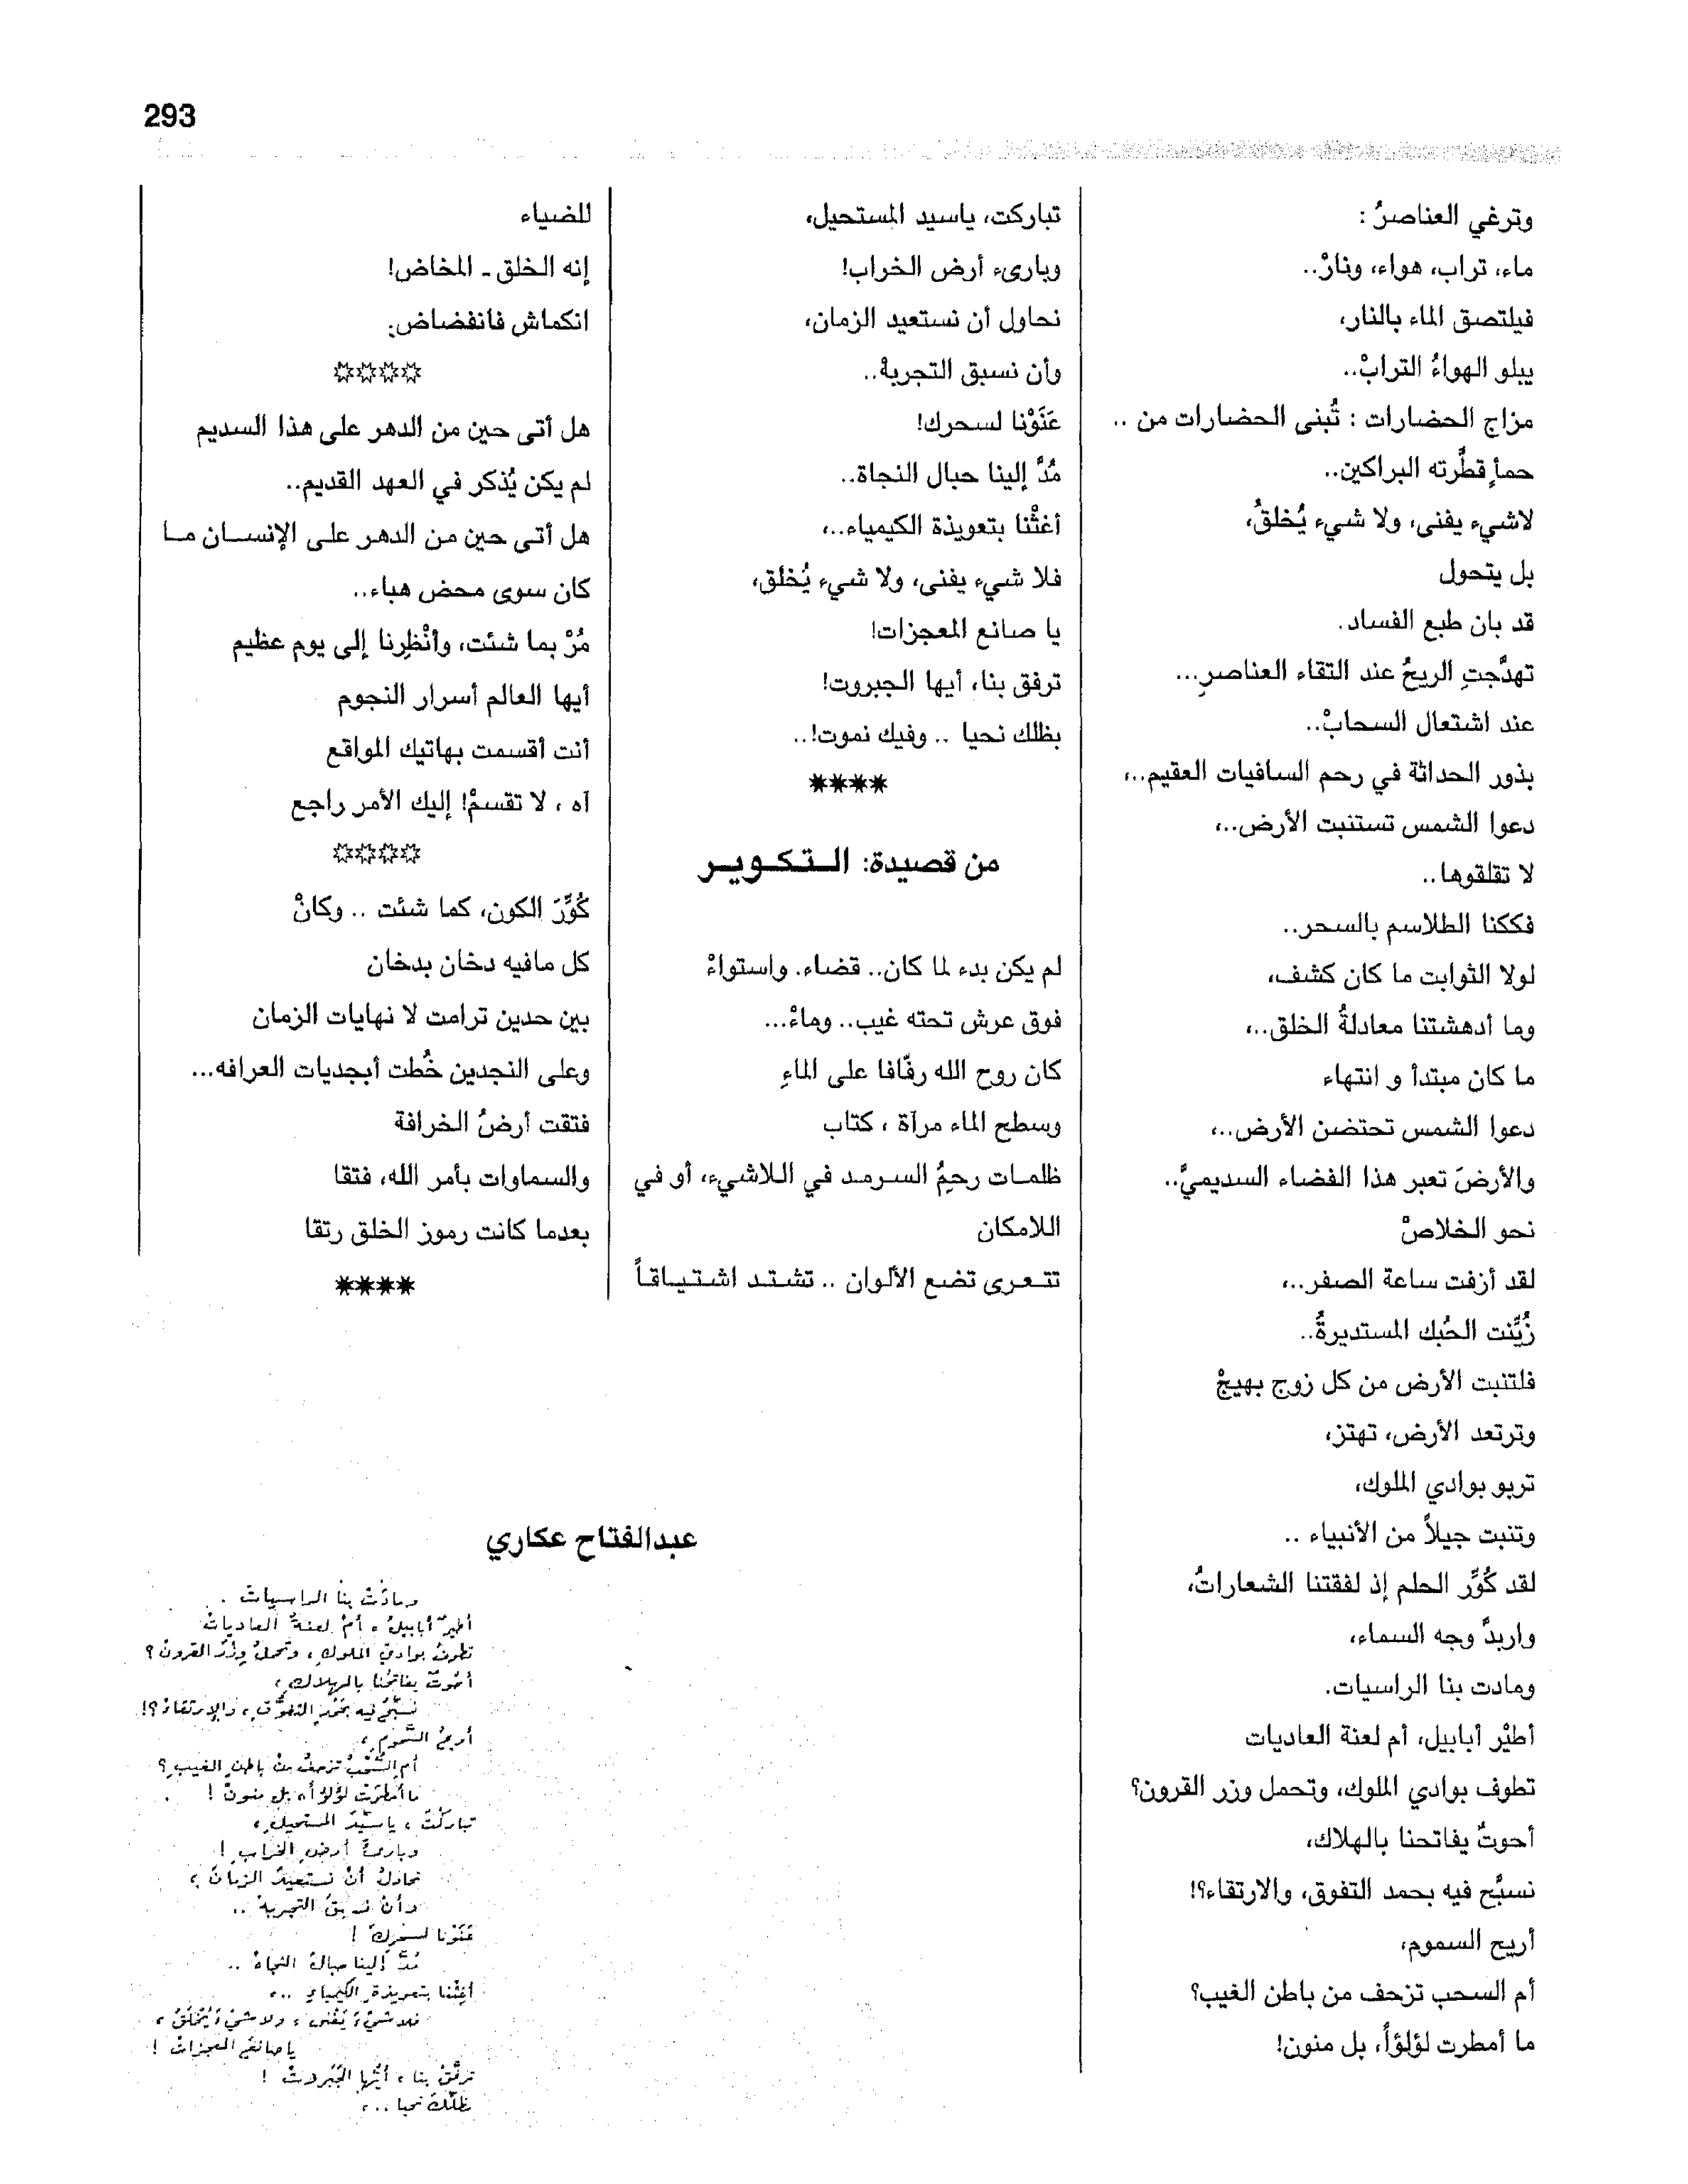 293
وترغي العناصرُ :
ماء، تراب، هواء، ونارْ..
فيلتصق الماء بالنار،
يبلو الهواءُ الترابْ..
مزاج الحضارات : تُبنى الحضارات من ..
حمأٍ قطَّرته البراكين..
لاشيء يفنى، ولا شيء يُخلقُ،
بل يتحول
قد بان طبع الفساد.
تهدَّجتِ الريحُ عند التقاء العناصرِ...
عند اشتعال السحابْ..
بذور الحداثة في رحم السافيات العقيم..،
دعوا الشمس تستنبت الأرض..،
لا تقلقوها..
فككنا الطلاسم بالسحر..
لولا الثوابت ما كان كشف،
وما أدهشتنا معادلةُ الخلق..،
ما كان مبتدأ و انتهاء
دعوا الشمس تحتضن الأرض..،
والأرضَ تعبر هذا الفضاء السديميَّ..
نحو الخلاصْ
لقد أزفت ساعة الصفر..،
زُيِّنت الحُبك المستديرةُ..
فلتنبت الأرض من كل زوج بهيجْ
وترتعد الأرض، تهتز،
تربو بوادي الملوك،
وتنبت جيلاً من الأنبياء ..
لقد كُوِّر الحلم إذ لفقتنا الشعاراتُ،
واربدَّ وجه السماء،
ومادت بنا الراسيات.
أطيْر أبابيل، أم لعنة العاديات
تطوف بوادي الملوك، وتحمل وزر القرون؟
أحوتٌ يفاتحنا بالهلاك،
نسبَّح فيه بحمد التفوق، والارتقاء؟!
أريح السموم،
أم السحب تزحف من باطن الغيب؟
ما أمطرت لؤلؤاً، بل منون!
تباركت، ياسيد المستحيل،
وبارىء أرض الخراب!
نحاول أن نستعيد الزمان،
وأن نسبق التجربهْ..
عَنَوْنا لسحرك!
مُدَّ إلينا حبال النجاة..
أغثْنا بتعويذة الكيمياء..،
فلا شيء يفنى، ولا شيء يُخلق،
يا صانع المعجزات!
ترفق بنا، أيها الجبروت!
بظلك نحيا .. وفيك نموت!..
****
من قصيدة: الـتـكـويـر
لم يكن بدء لما كان.. قضاء. واستواءْ
فوق عرش تحته غيب.. وماءْ...
كان روح الله رفّافا على الماءِ
وسطح الماء مرآة ، كتاب
ظلمـات رحمُ السـرمـد في الـلاشيء، أو في
اللامكان
تتـعـرى تضع الألوان .. تشـتـد اشـتـيـاقـاً
للضياء
إنه الخلق ـ المخاض!
انكماش فانفضاض.
****
هل أتى حين من الدهر على هذا السديم
لم يكن يُذكر في العهد القديم..
هل أتـى حين مـن الدهـر علـى الإنســان مـا
كان سوى محض هباء..
مُرْ بما شئت، وأنْظِرنا إلى يوم عظيم
أيها العالم أسرار النجوم
أنت أقسمت بهاتيك المواقع
آه ، لا تقسمْ! إليك الأمر راجع
****
كُوِّرَ الكون، كما شئت .. وكانْ
كل مافيه دخان بدخان
بين حدين ترامت لا نهايات الزمان
وعلى النجدين خُطت أبجديات العرافه...
فتقت أرضُ الخرافة
والسماوات بأمر الله، فتقا
بعدما كانت رموز الخلق رتقا
****
عبدالفتاح عكاري
ومادَتْ بنا الراسياتْ .
أطيرٌ أبابيلُ ، أمْ لعنةُ العادياتْ
تطوفُ بوادي الملوكِ، وتحملُ وِزْرَ القرونْ؟
أحوتٌ يفاتحُنا بالهلاكِ،
نسبِّحُ فيه بحَمْدِ التفوُّقِ، والإرتقاءْ؟!
أريحُ السَّمومِ،
أم السُّحْبُ تزحفُ منْ باطنِ الغيبِ؟
ما أمطرَتْ لؤلؤاً، بل منونْ!
تباركْتَ ، ياسيّدَ المستحيلِ،
وبارئَ أرضِ الخرابِ!
نحاولُ أنْ نستعيدَ الزمانَ،
وأنْ نسبقَ التجربهْ ..
عَنَوْنا لسحرِكَ !
مُدَّ إلينا حبالَ النجاةْ ..
أغِثْنا بتعويذةِ الكيمياءِ ..،
فلا شيْءَ يَفْنى ، ولا شيْءَ يُخْلَقُ ،
يا صانعَ المعجزاتْ !
ترفَّقْ بنا ، أيُّها الجَبَروتْ !
بظلّكَ نحيا ..،